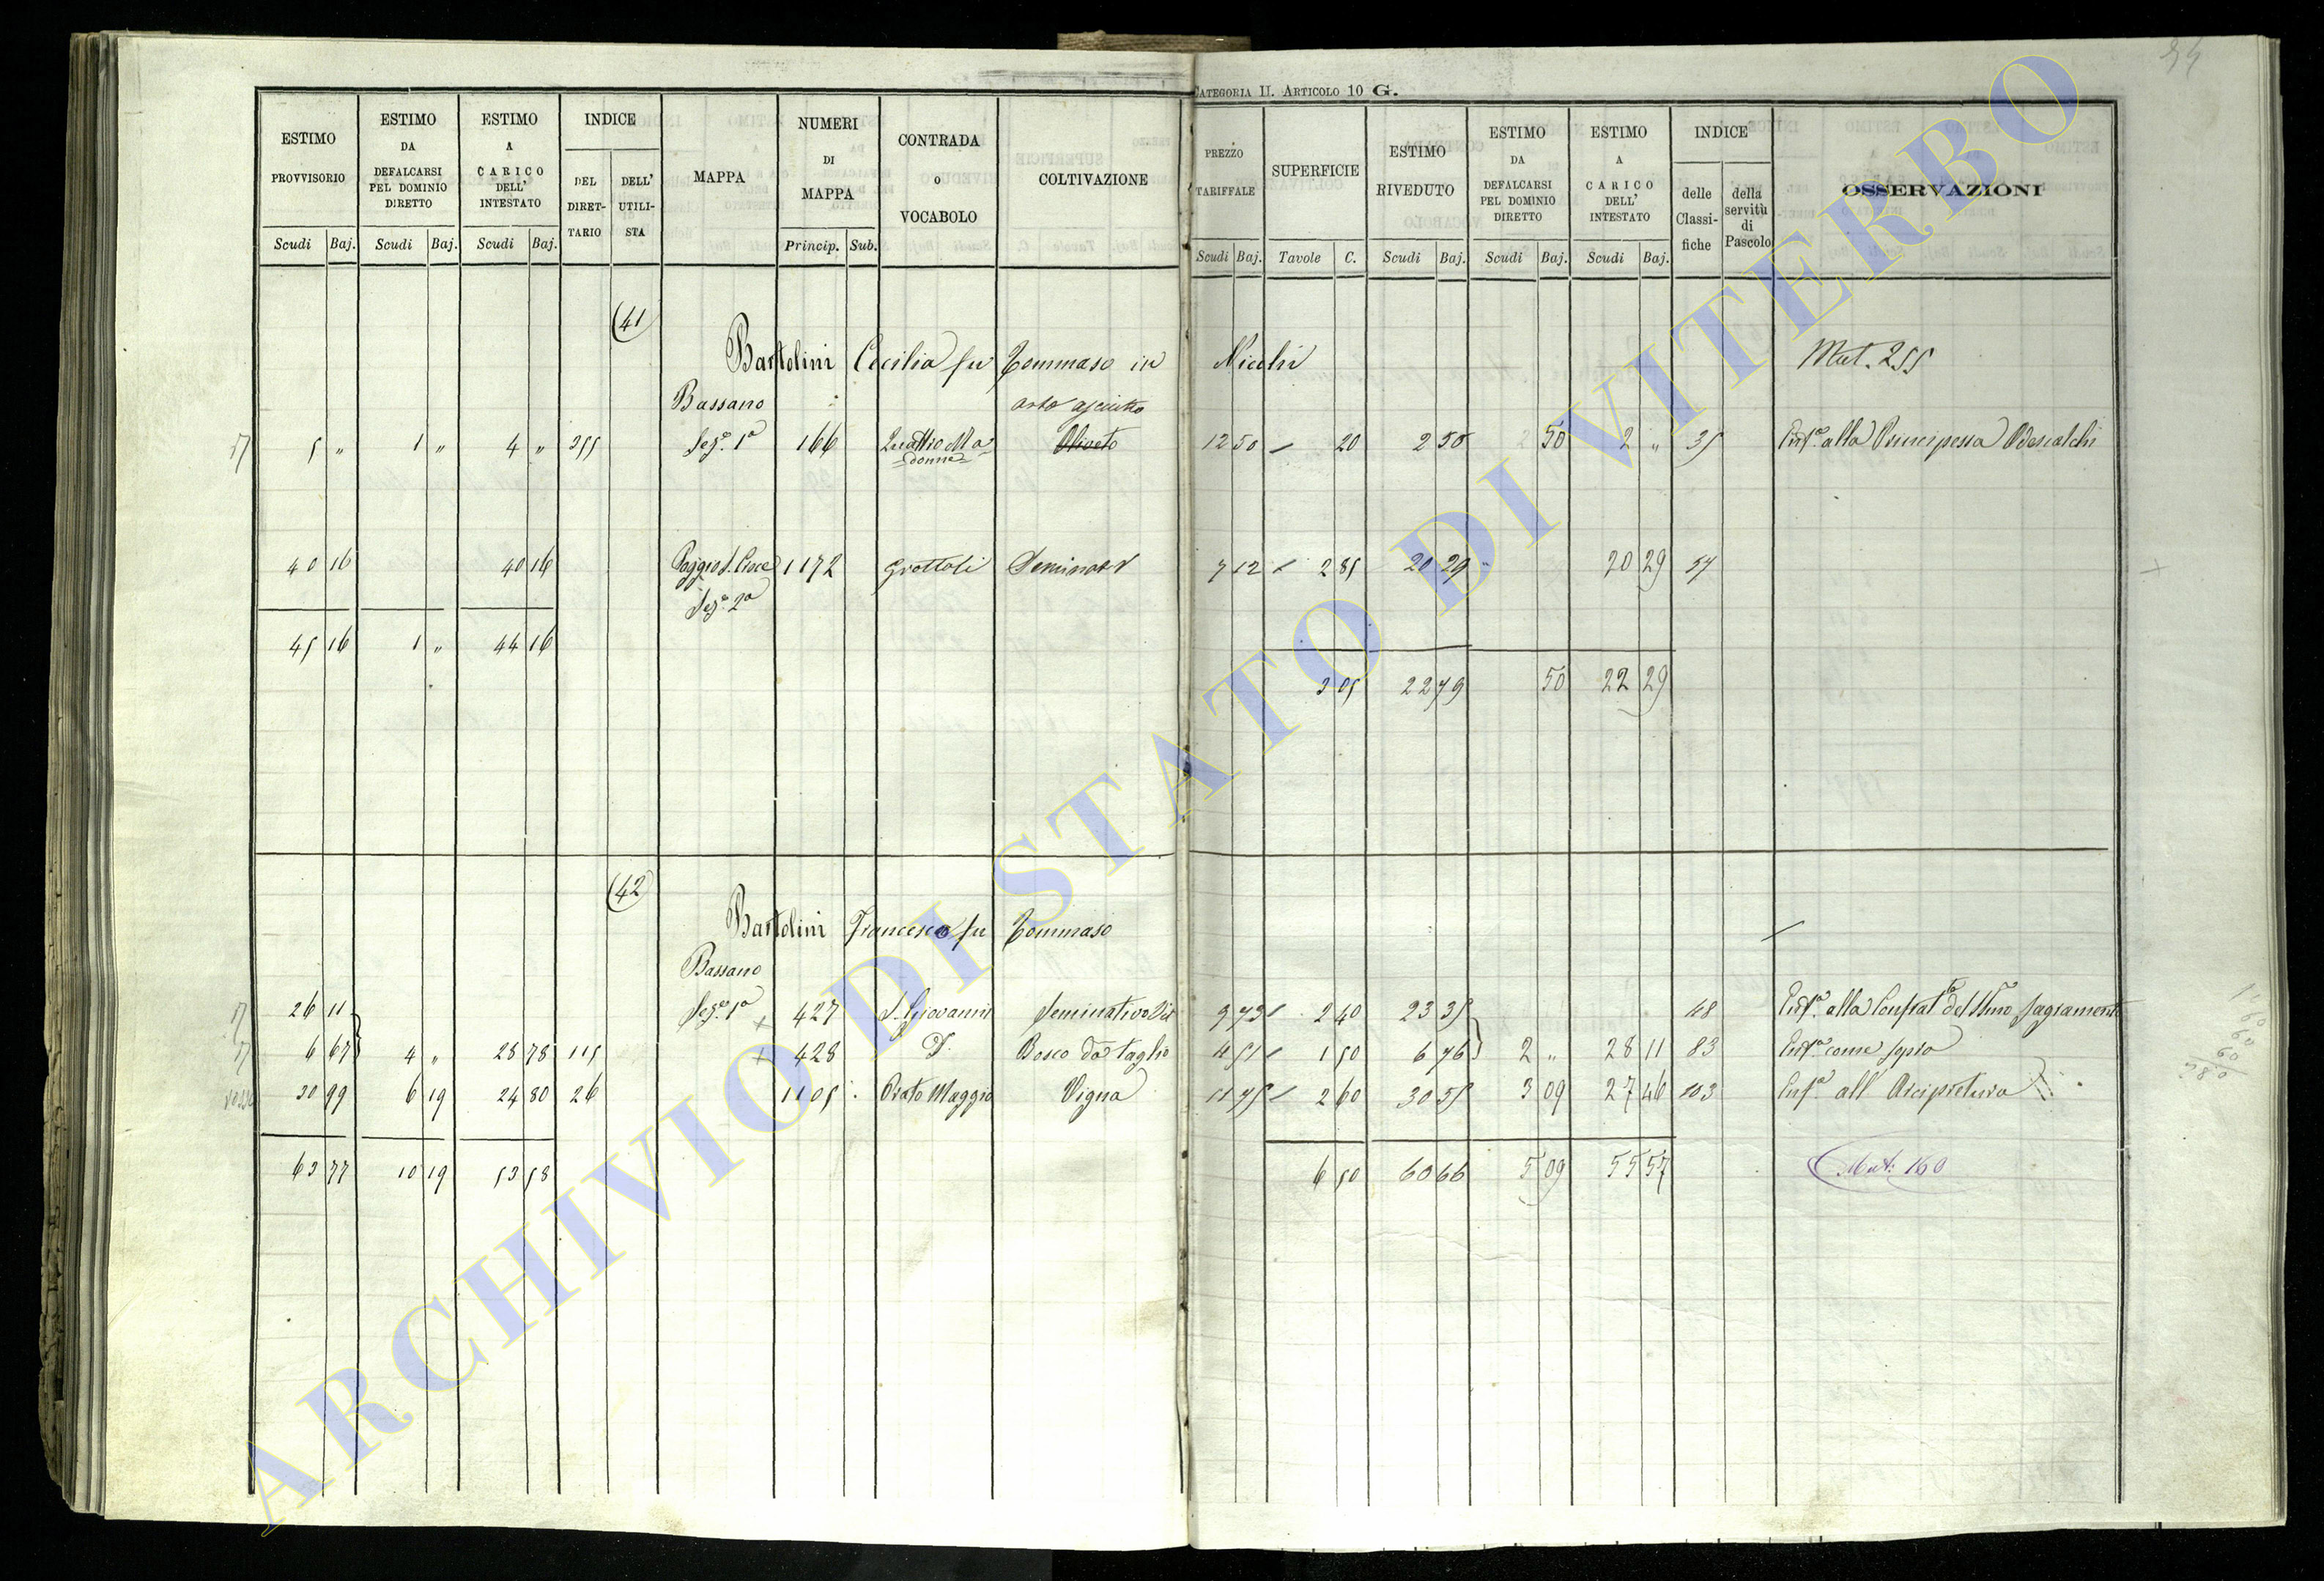 34
CATEGORIA II. ARTICOLO 10 G.
ESTIMO PROVVISORIO Scudi Baj.
ESTIMO DA DEFALCARSI PEL DOMINIO DIRETTO Scudi Baj.
ESTIMO A CARICO DELL' INTESTATO Scudi Baj.
INDICE DEL DIRETTARIO DELL' UTILISTA
MAPPA
NUMERI DI MAPPA Princip. Sub.
CONTRADA O VOCABOLO
COLTIVAZIONE
PREZZO TARIFFALE Scudi Baj.
SUPERFICIE Tavole C.
ESTIMO RIVEDUTO Scudi Baj.
ESTIMO DA DEFALCARSI PEL DOMINIO DIRETTO Scudi Baj.
ESTIMO A CARICO DELL' INTESTATO Scudi Baj.
INDICE delle Classifiche della servitù di Pascolo
OSSERVAZIONI
41
Bartolini Cecilia fu Tommaso in Nicolii Mut. 255
Bassano orto asciutto
5 " 1 " 4 " 255 Sez.e 1a 166 Quattro Ma= =donne= Oliveto 12 50 20 2 50 50 2 " 35 Enf.a alla Principessa Odescalchi
40 16 40 16 Poggio S. Croce 1172 Grottoli Seminat 7 12 2 85 20 29 " 20 29 57
Sez.e 2a
45 16 1 " 44 16
3 05 22 79 50 22 29
42
Bartolini Francesco fu Tommaso
Bassano
26 11 Sez.e 1a 427 S. Giovanni Seminativo Vit 9 73 2 40 23 35 48 Enf.a alla Confrat.ta del SSmo Sagramento
6 67 4 " 28 78 115 428 D. Bosco da taglio 4 51 1 50 6 76 2 " 28 11 83 Enf.a come sopra
30 99 6 19 24 80 26 1105 Prato Maggio Vigna 11 75 2 60 30 55 3 09 27 46 103 Enf.a all' Arcipretura
63 77 10 19 53 58 6 50 60 66 5 09 55 57 Mut: 160
ARCHIVIO DI STATO DI VITERBO